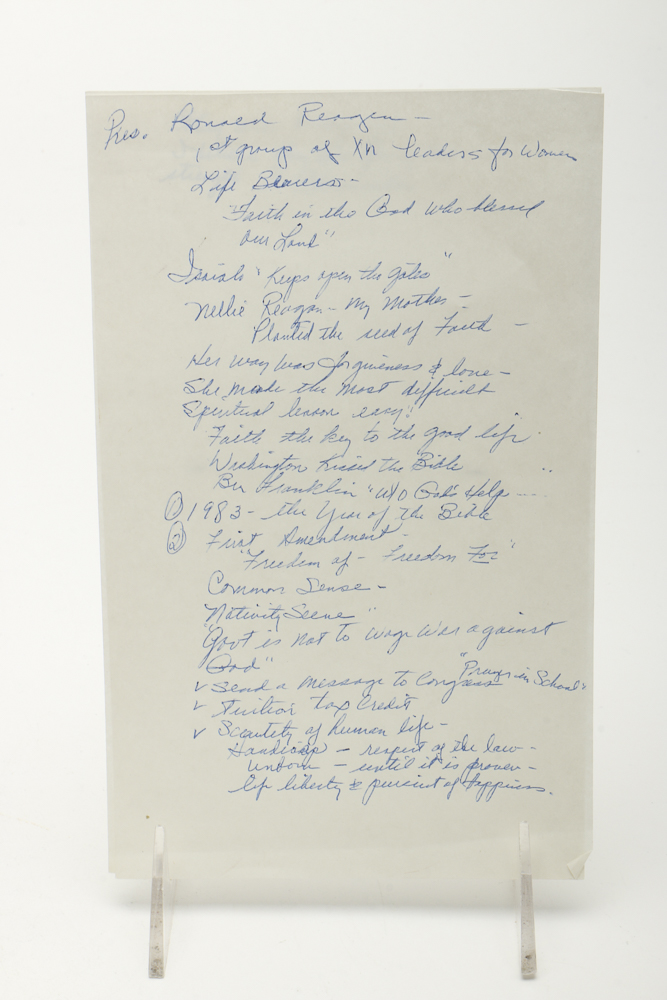 Pres. Ronald Reagan —
1st group of Xn leaders for Women
Life
Faith in the God who blessed
our Land"
Isaiah "Keeps open the gates"
Nellie Reagan - My Mother -
Planted the seed of Faith -
Her way was forgiveness & love -
She made the most difficult
Spiritual lesson easy!
Faith the key to the good life
Washington kissed the Bible
Ben Franklin "w/o God's Help ----
① 1983 - the Year of the Bible
② First Amendment -
"Freedom of - Freedom For"
Common Sense -
Nativity Scene"
"Govt is not to wage war against
God"
✓ Send a message to Congress "Prayer in Schools"
✓ Tuition tax credit
✓ of human life -
Handicap - respect of the law -
unborn - until it is proven -
life liberty & pursuit of happiness.